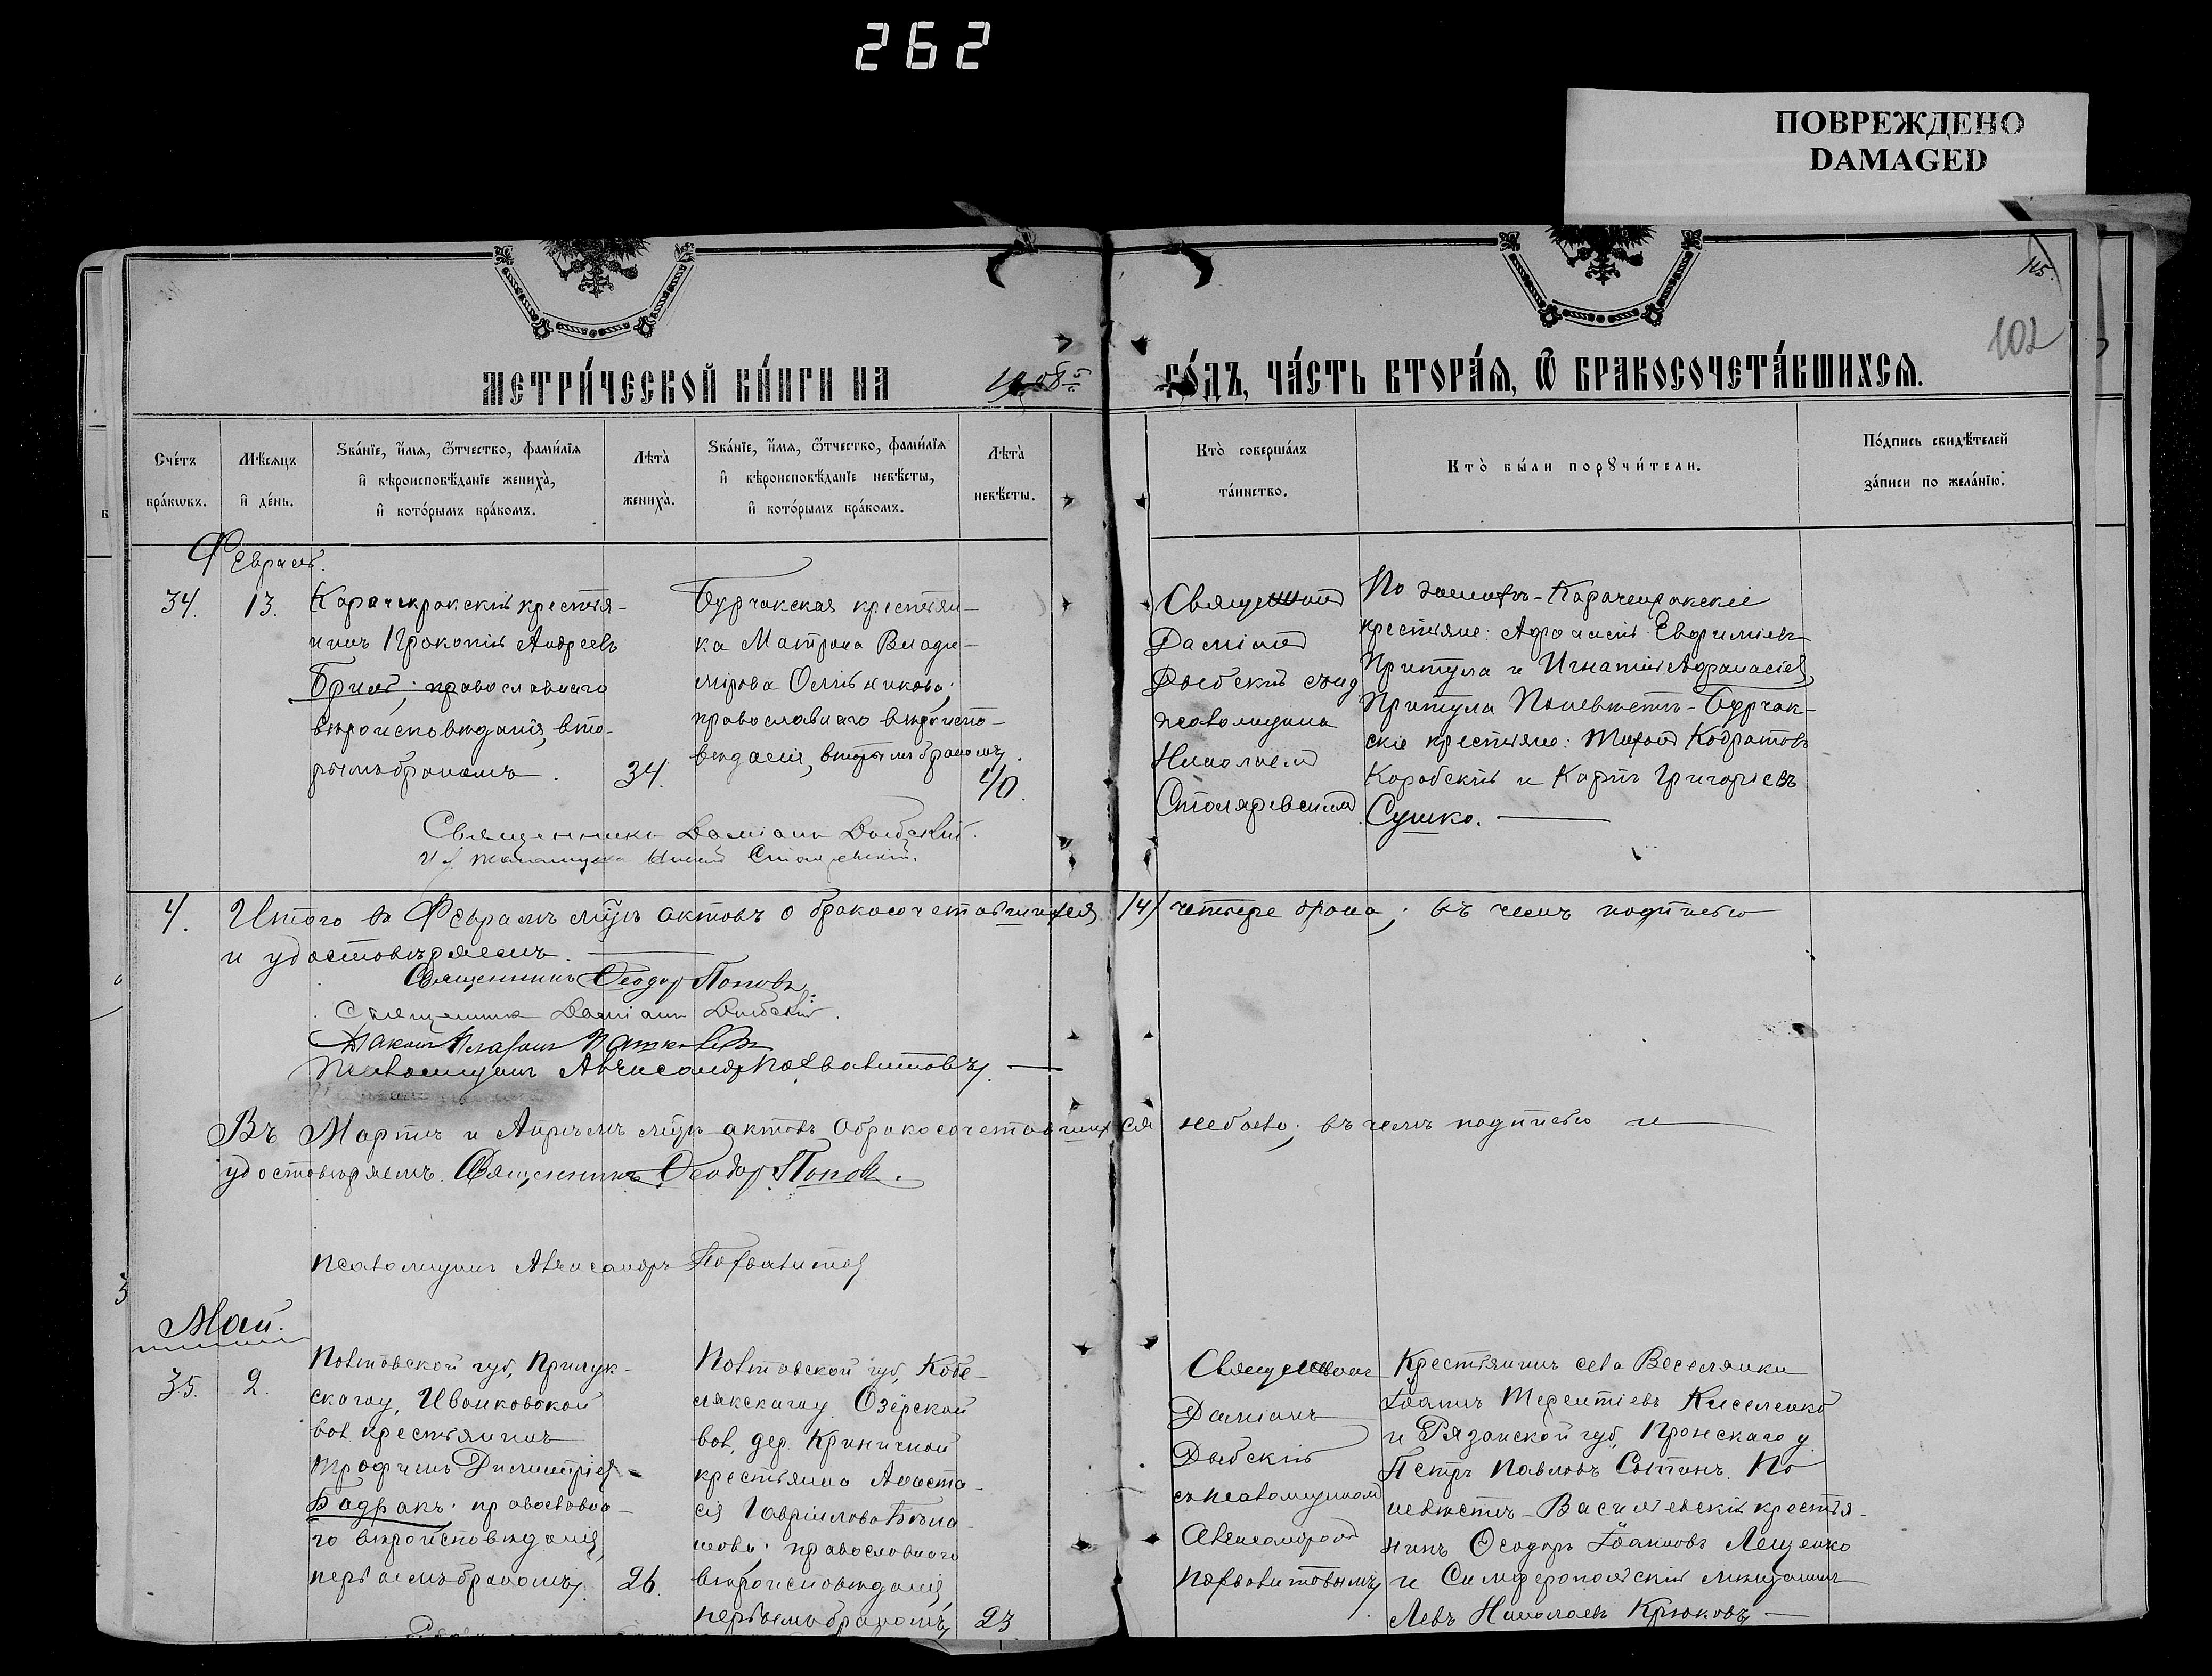 262
ПОВРЕЖДЕНО
DAMAGED
102
МЕТРИ́ЧЕСКОЙ КНИ́ГИ НА
ГО́ДЪ, ЧА́СТЬ ВТОРА́Я, Ѽ БРАКОСОЧЕТА́ВШИХСЯ.
Сче́тъ бра́кωвъ.
Мѣ́сяцъ и҆ де́нь.
Ѕва́нїе, и҆́мя, ѻ҆́тчество, фами́лїя и҆ вѣроисповѣ́данїе жениха̀, и҆ кото́рымъ бра́комъ.
Лѣта̀ жениха̀.
Ѕва́нїе, и҆́мя, ѻ҆́тчество, фами́лїя и҆ вѣроисповѣ́данїе невѣ́сты, и҆ кото́рымъ бра́комъ.
Лѣта̀ невѣ́сты.
Кто̀ соверша́лъ та́инство.
Кто̀ бы́ли порꙋчи́тели.
По́дпись свидѣ́телей за́писи по жела́нїю.
Февраль.
34.
13.
Карачекракскій крестья-
нинъ Прокопій Андреевъ
Бриль; православнаго
вѣроисповѣданія, вто-
рымъ бракомъ.
34.
Бурчакская крестьян-
ка Матрона Влади-
мірова Осьмникова;
православнаго вѣроиспо-
вѣданія, вторымъ бракомъ.
40.
Священникъ Даміанъ
Николаем
Столяревским
По женихѣ - Карачекракскіе
крестьяне: Афанасій Евфиміевъ
Притула и Игнатій Афанасіев
Притула По невѣстѣ - Бурчак-
скіе крестьяне: Тихон Кодратовъ
Коробскій и Карпъ Григорьевъ
Сушко.
Священникъ Даміанъ
4.
Итого въ Февралѣ м-цѣ актовъ о бракосочетавшихся /4/ четыре брака; въ чемъ подписью
и удостовѣряемъ.
Священникъ Ѳеодоръ Поповъ.
Священникъ Даміанъ
Псаломщикъ Александръ Похвалитовъ.
Въ Мартѣ и Апрѣлѣ м-цѣ актовъ о бракосочетавшихся небыло; въ чемъ подписью и
удостовѣряемъ. Священникъ Ѳеодоръ Поповъ.
Псаломщикъ Александръ Похвалитов
Май.
35.
2.
Полтавской губ, Прилук-
скаго у, Иваиковской
вол. крестьянинъ
Трофимъ Димитріев
Бадракъ; православна-
го вѣроисповѣданія,
первымъ бракомъ.
26.
Полтавской губ, Кобе-
лякскаго у. Озёрской
вол, дер. Криничной
крестьянка Анаста-
сія Гавріилова
православнаго
вѣроисповѣданія,
первымъ бракомъ,
23
Священникъ
Даміанъ
съ псаломщиком
Александром
Похвалитовымъ
Крестьянинъ села Веселянки
Іоаннъ Терентіевъ Киселенко
и Рязанской губ, Пронскаго у.
Петръ Павловъ По
невѣстѣ - Васильевскій крестья-
нинъ Ѳеодоръ Іоанновъ Лещенко
и Симферопольскій мѣщанинъ
Левъ Николаевъ Крюковъ